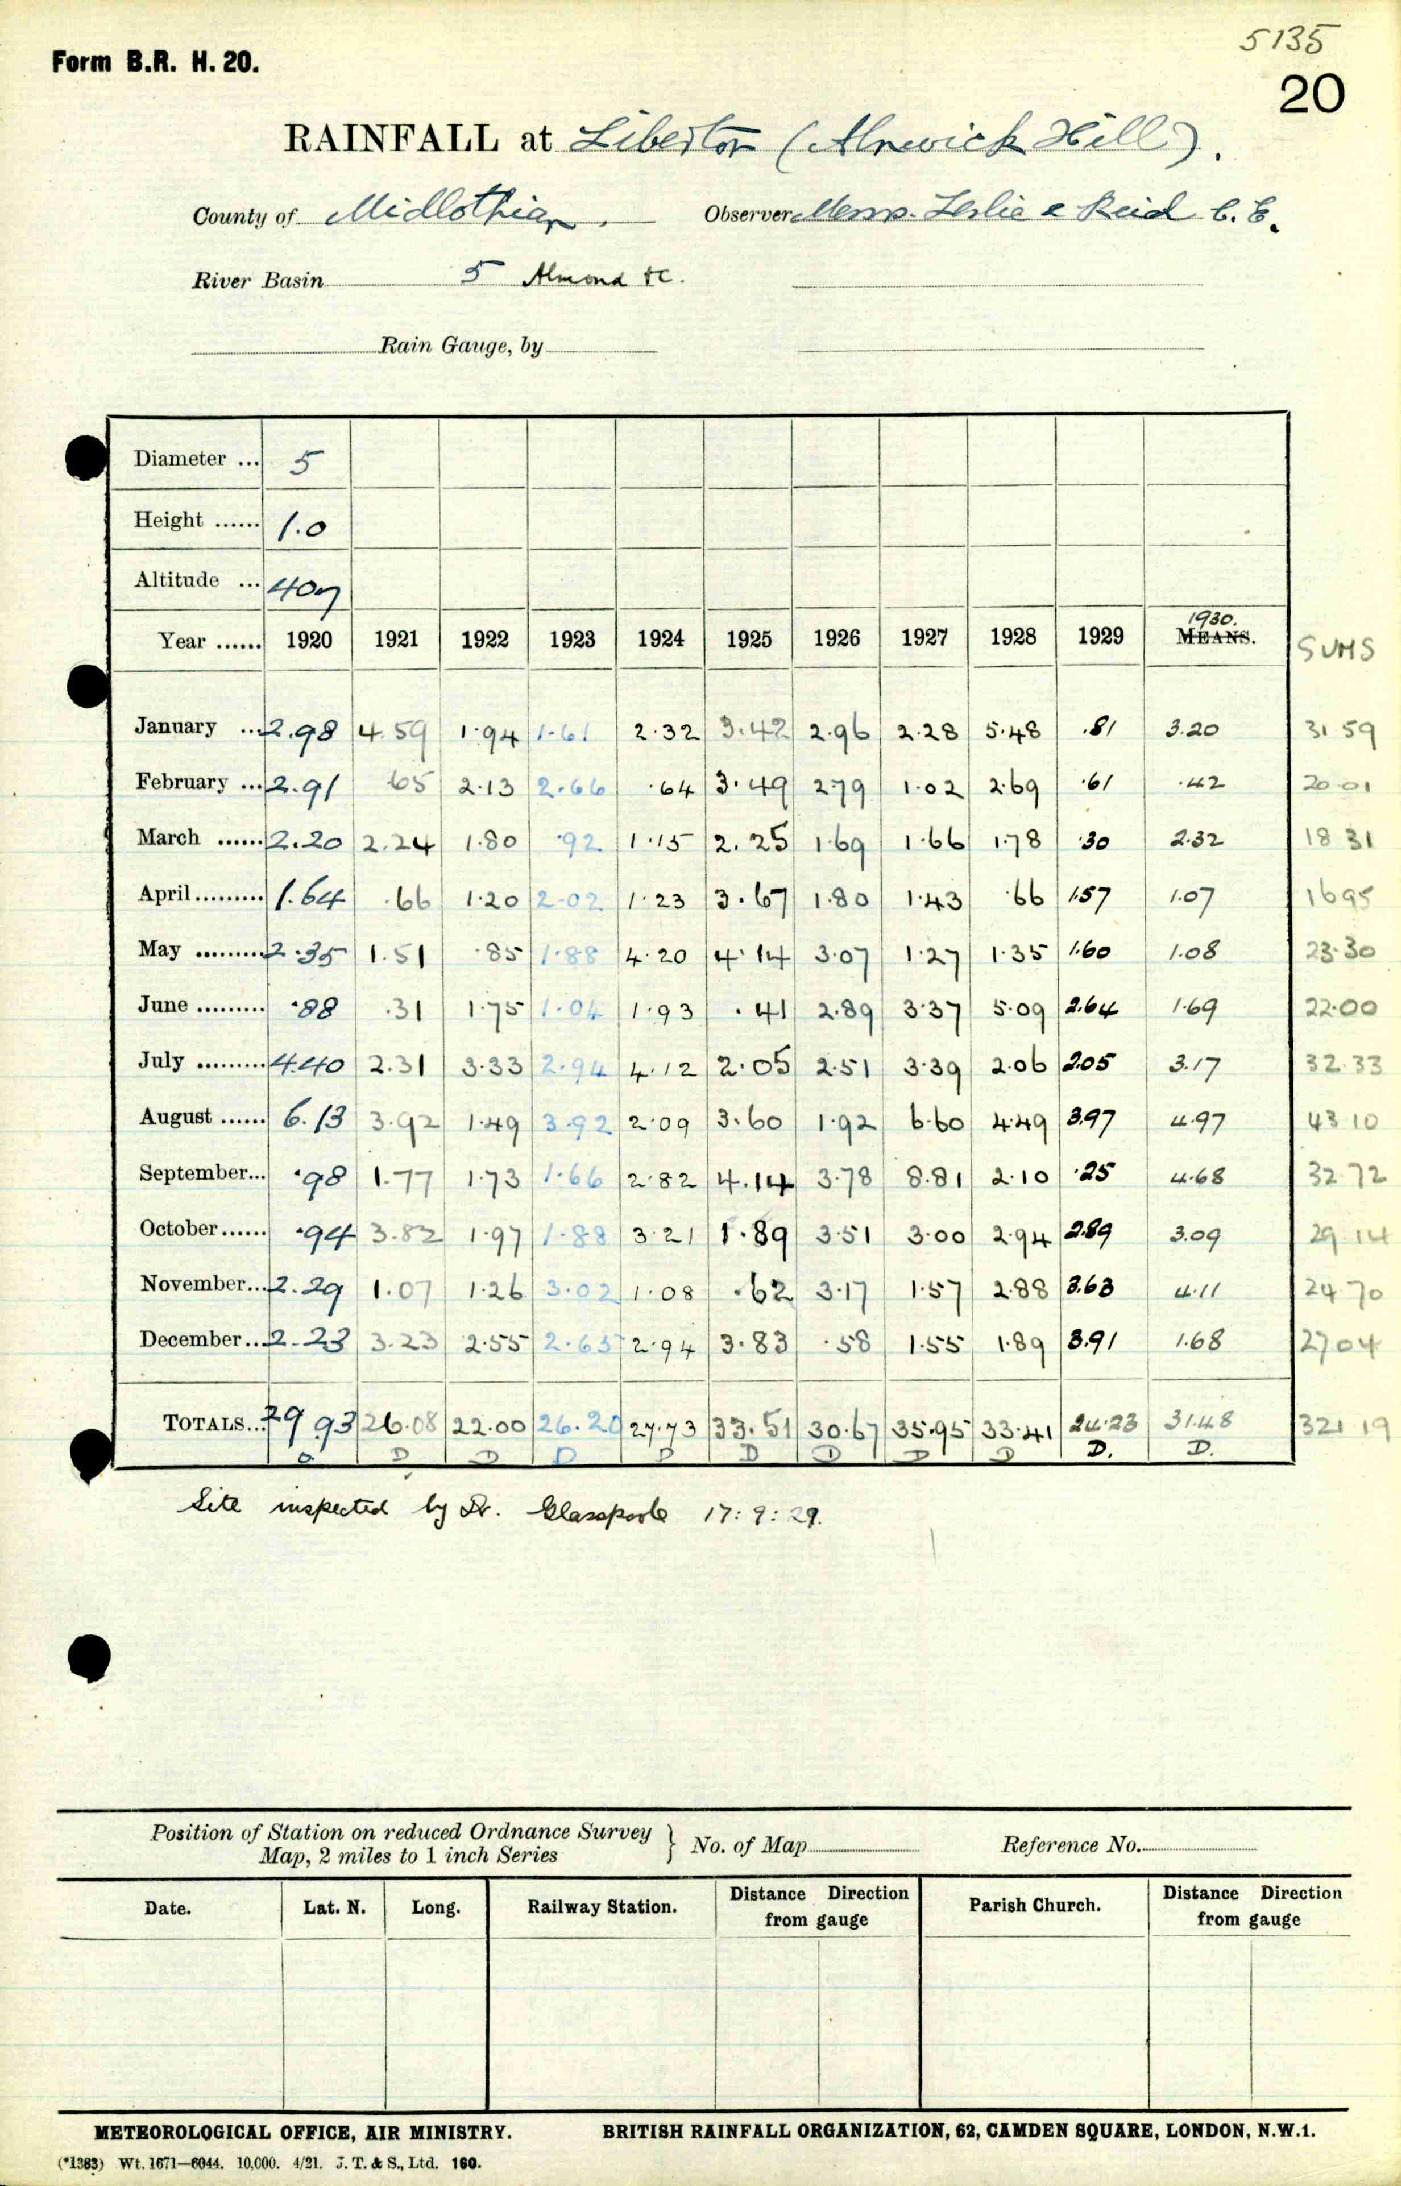 5135
Form B.R. H. 20.
20
RAINFALL at Liberton (Alnwick Hill).
County of Midlothian. Observer Messrs. Leslie & Reid C. E.
River Basin 5 Almond &c.
Rain Gauge, by
Diameter ... 5
Height ...... 1.0
Altitude ... 407
1930.
Year ...... 1920 1921 1922 1923 1924 1925 1926 1927 1928 1929 MEANS. SUMS
January ... 2.98 4.59 1.94 1.61 2.32 3.42 2.96 2.28 5.48 .81 3.20 31 59
February ... 2.91 65 2.13 2.66 .64 3.49 2.79 1.02 2.69 .61 .42 20.01
March ...... 2.20 2.24 1.80 .92 1.15 2.25 1.69 1.66 1.78 .30 2.32 18 31
April ......... 1.64 .66 1.20 2.02 1.23 3.67 1.80 1.43 .66 1.57 1.07 16 95
May ......... 2.35 1.51 .85 1.88 4.20 4.14 3.07 1.27 1.35 1.60 1.08 23.30
June ......... .88 .31 1.75 1.04 1.93 .41 2.89 3.37 5.09 2.64 1.69 22.00
July ......... 4.40 2.31 3.33 2.94 4.12 2.05 2.51 3.39 2.06 2.05 3.17 32.33
August ...... 6.13 3.92 1.49 3.92 2.09 3.60 1.92 6.60 4.49 3.97 4.97 43 10
September... .98 1.77 1.73 1.66 2.82 4.14 3.78 8.81 2.10 .25 4.68 32.72
October...... .94 3.82 1.97 1.88 3.21 1.89 3.51 3.00 2.94 2.89 3.09 29.14
November... 2.29 1.07 1.26 3.02 1.08 .62 3.17 1.57 2.88 3.63 4.11 24 70
December... 2.23 3.23 2.55 2.65 2.94 3.83 .58 1.55 1.89 3.91 1.68 27 04
TOTALS... 29.93 26.08 22.00 26.20 27.73 33.51 30.67 35.95 33.41 24.23 31.48 321 19
D D D D D D D D D D. D.
Site inspected by Dr. Glasspoole 17:9:29.
Position of Station on reduced Ordnance Survey
Map, 2 miles to 1 inch Series } No. of Map Reference No.
Date. Lat. N. Long. Railway Station. Distance Direction from gauge Parish Church. Distance Direction from gauge
METEOROLOGICAL OFFICE, AIR MINISTRY. BRITISH RAINFALL ORGANIZATION, 62, CAMDEN SQUARE, LONDON, N.W.1.
(*1383) Wt. 1671—6044. 10,000. 4/21. J. T. & S., Ltd. 160.